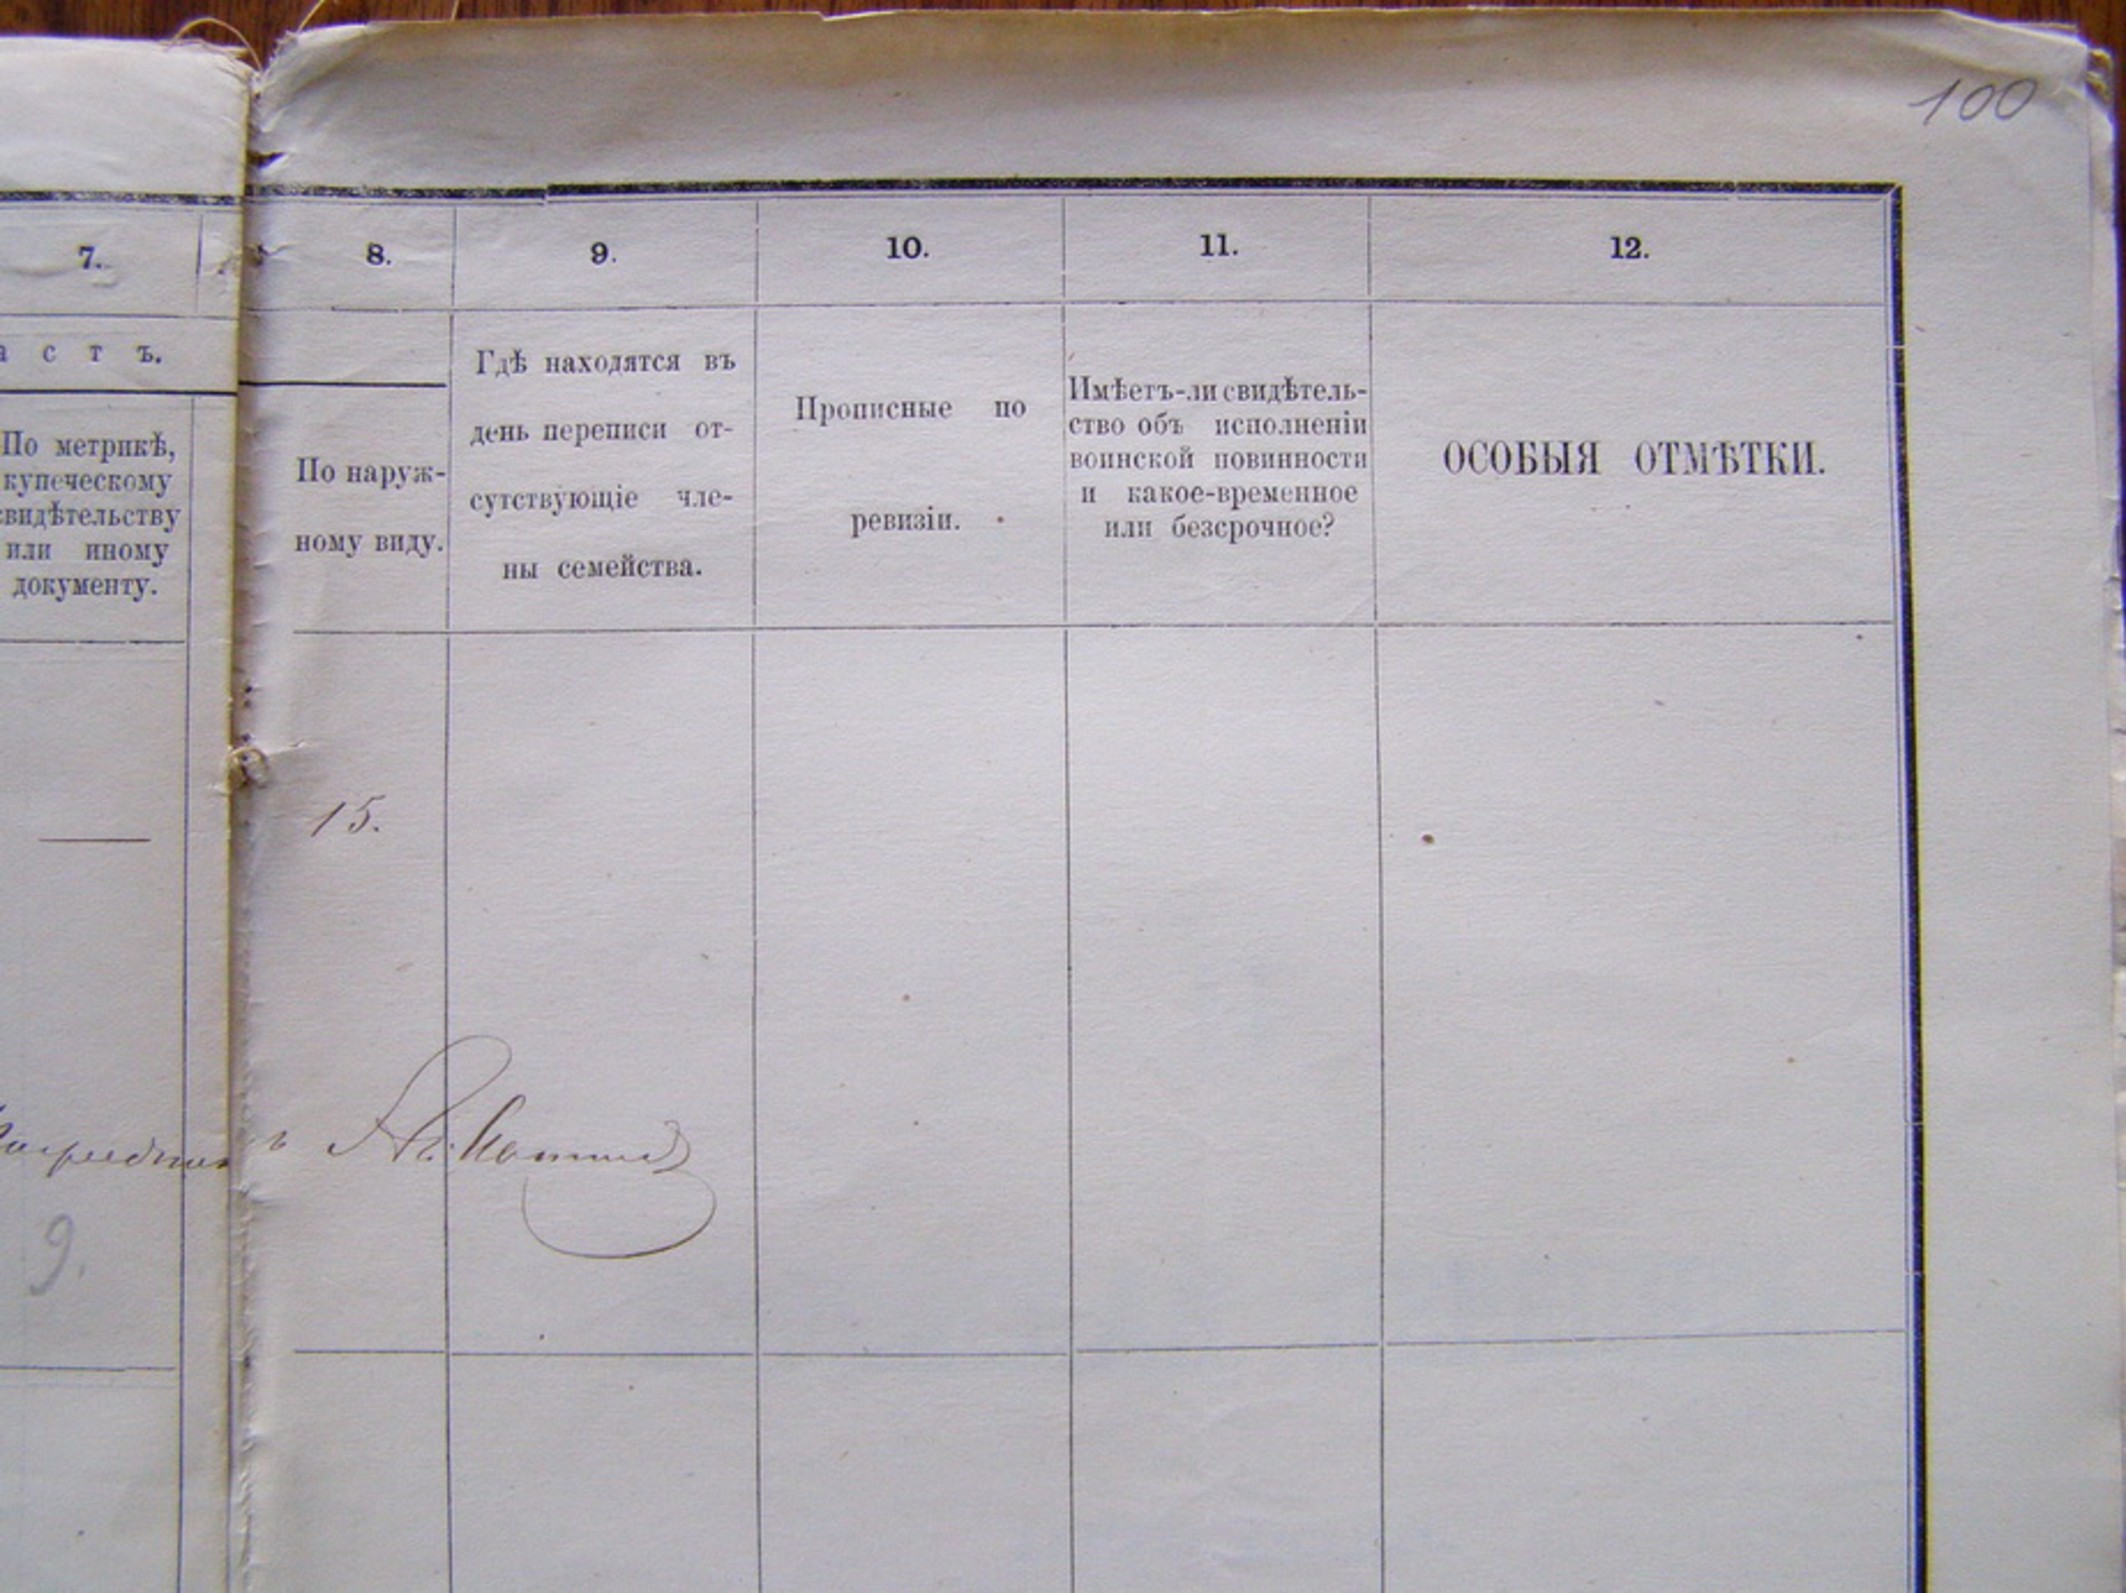 100
7. 8. 9. 10. 11. 12.
а с т ъ.
По метрикѣ,
купеческому
свидѣтельству
или иному
документу.
По наруж-
ному виду.
Гдѣ находятся въ
день переписи от-
сутствующіе чле-
ны семейства.
Прописные по
ревизіи.
Имѣетъ-ли свидѣтель-
ство объ исполненіи
воинской повинности
и какое-временное
или безсрочное?
ОСОБЫЯ ОТМѢТКИ.
15.
9.